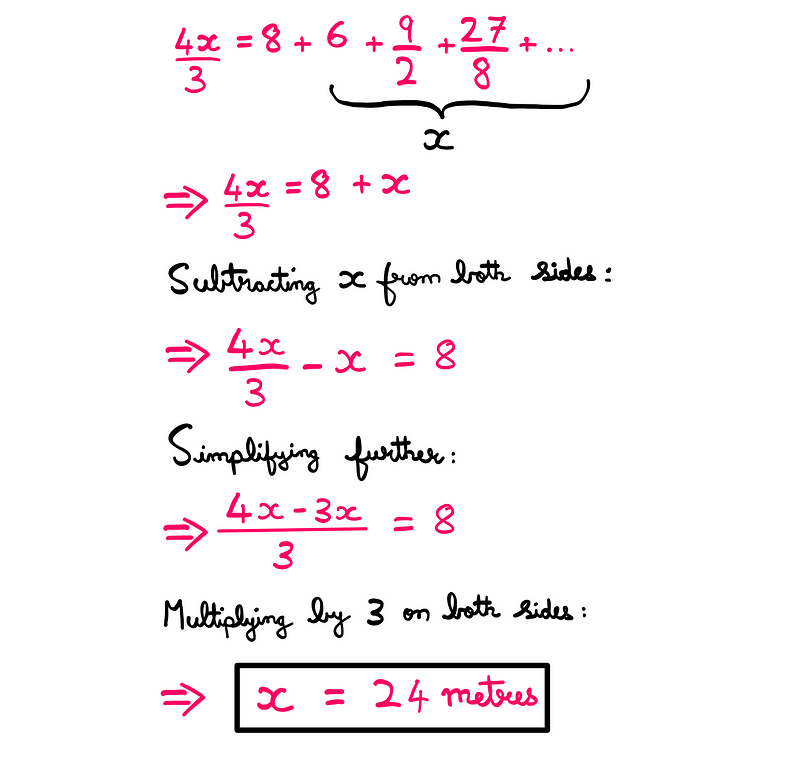 4x/3 = 8 + 6 + 9/2 + 27/8 + ...
x
⇒ 4x/3 = 8 + x
Subtracting x from both sides:
⇒ 4x/3 - x = 8
Simplifying further:
⇒ 4x - 3x/3 = 8
Multiplying by 3 on both sides:
⇒ x = 24 metres